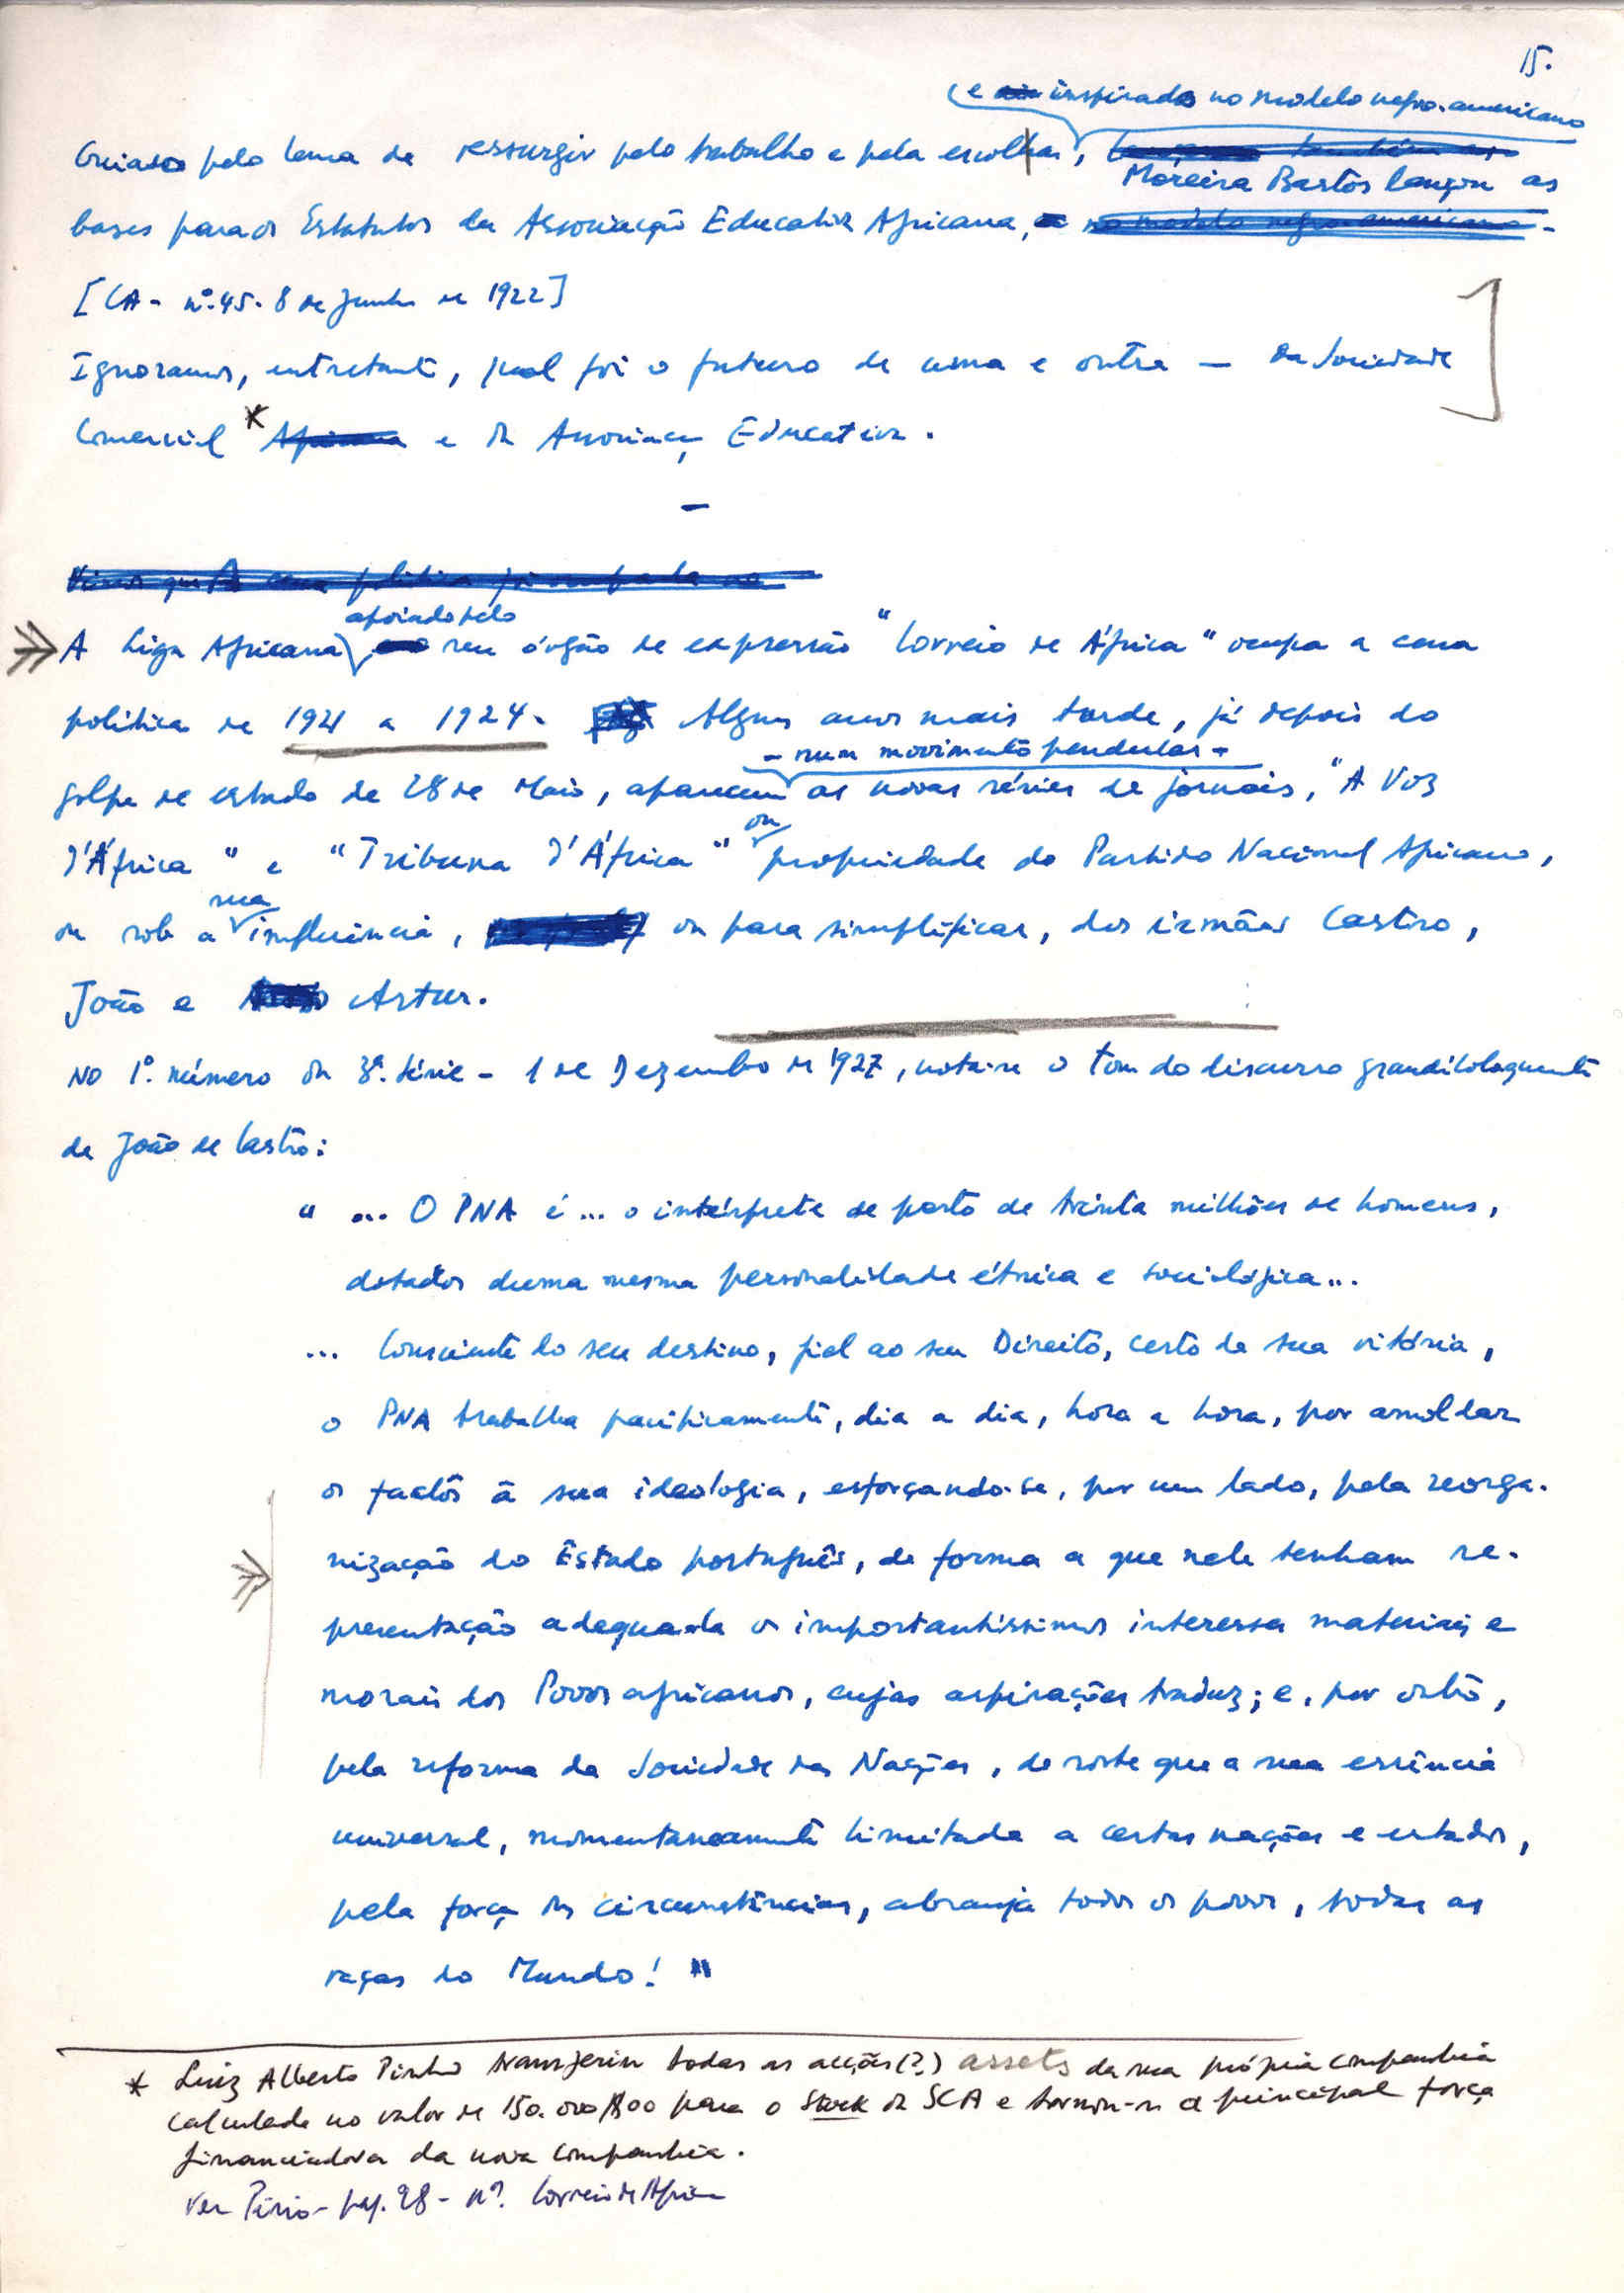 15.
e inspirado no modelo negro-americano
Guiado pelo lema de ressurgir pelo trabalho e pela escola,
Moreira Bastos lançou as
bases para os Estatutos da Associação Educativa Africana,
[CA - nº. 45. 8 de Junho de 1922]
Ignoramos, entretanto, qual foi o futuro de uma e outra — da Sociedade
Comercial * Africana e da Associação Educativa.
—
apoiada pelo
A Liga Africana, seu órgão de expressão "Correio de África" ocupa a cena
política de 1921 a 1924. Alguns anos mais tarde, já depois do
- num movimento pendular -
golpe de estado de 28 de Maio, aparecem as novas séries de jornais, "A Voz
d'África" e "Tribuna d'África" ou propriedade do Partido Nacional Africano,
ou sob a sua influência, ou para simplificar, dos irmãos Castro,
João e Artur.
No 1º. número da 3ª. Série - 1 de Dezembro de 1927, nota-se o tom do discurso grandiloloquente
de João de Castro:
"... O PNA é ... o intérprete de perto de trinta milhões de homens,
dotados duma mesma personalidade étnica e sociológica...
... Consciente do seu destino, fiel ao seu Direito, certo da sua vitória,
o PNA trabalha pacificamente, dia a dia, hora a hora, por amoldar
os factos à sua ideologia, esforçando-se, por um lado, pela reorga-
nização do Estado português, de forma a que nele tenham re-
presentação adequada os importantíssimos interesses materiais e
morais dos Povos africanos, cujas aspirações traduz; e, por outro,
pela reforma da Sociedade das Nações, de sorte que a sua essência
universal, momentaneamente limitada a certas nações e estados,
pela força das circunstâncias, abranja todos os povos, todas as
raças do Mundo!"
* Luiz Alberto Pinho transferiu todas as acções (?) assets da sua própria companhia
calculada no valor de 150.000$00 para o stock da SCA e tornou-se a principal força
financiadora da nova companhia.
Ver Pirio - pag. 28 - nº. Correio de África